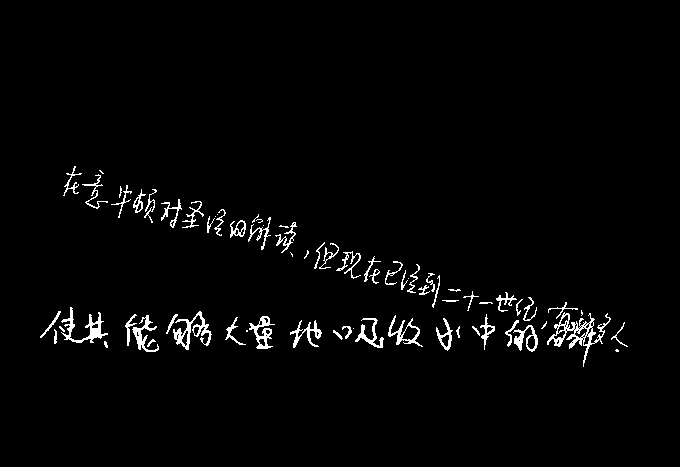 在意牛顿对圣经的解读，但现在已经到二十一世纪，
使其能够大量地吸收水中的